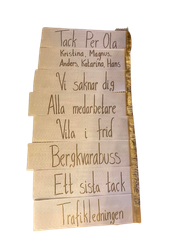 Tack Per Ola
Kristina, Magnus,
Anders, Katarina, Hans
Vi saknar dig
Alla medarbetare
Vila i frid
Bergkvarabuss
Ett sista tack
Trafikledningen